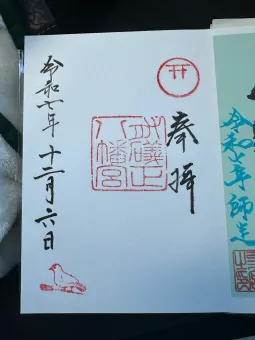 令和七年師走
奉拝
正
八幡宮
令和七年十二月六日